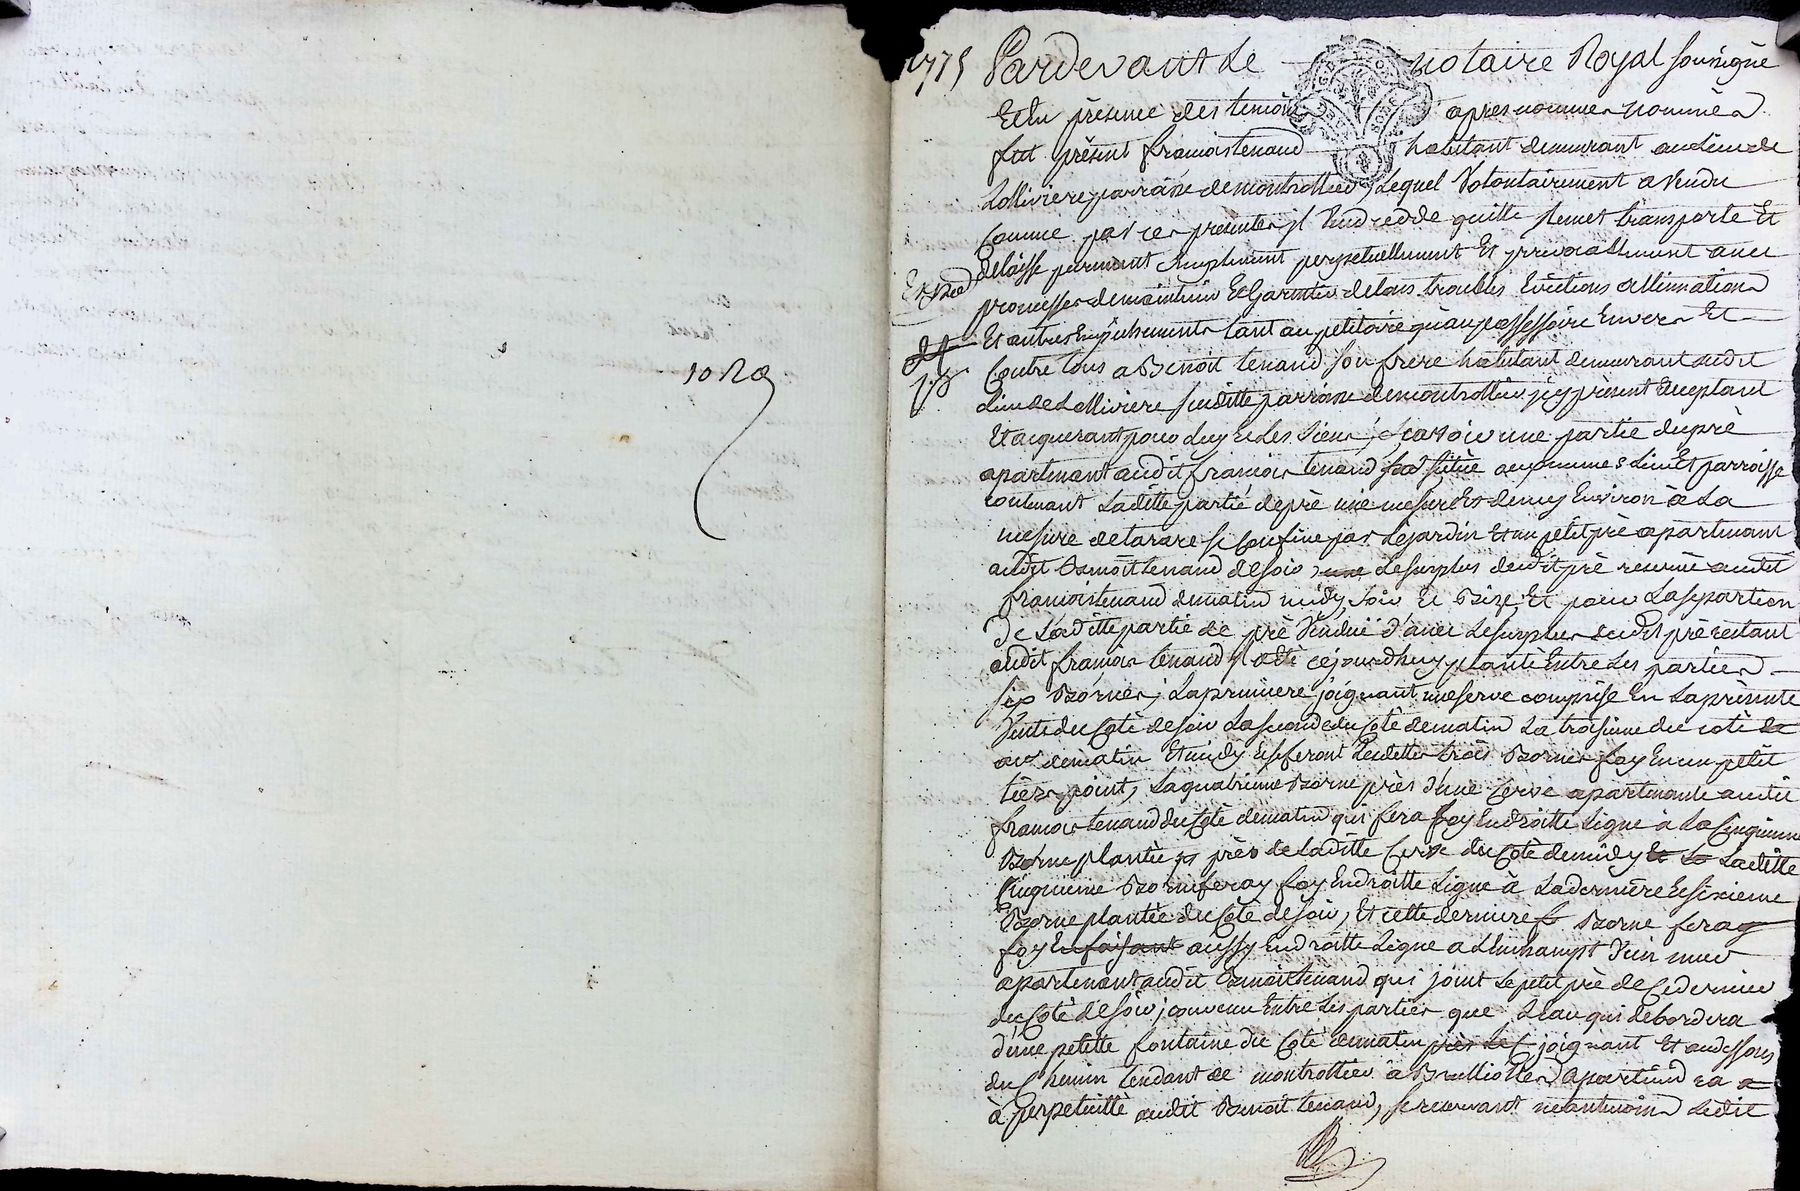 10 Ra
1775 Pardevant Le notaire Royal soussigné
Et En présence des temoins apres nommer nommés
fut présent francois tenaud habitant demurant au lieu de
Lolliviere parroisse de montrottier, Lequel Volontairement a Vendu
Comme par ces presentes il Vend cedde quitte Remet transporte Et
delaisse purement simplement perpetuellement Et irrevocablement avec
Exped
promesse de maintenir Et Garantir de tous troubles Evictions allienations
Et autres Empechements tant au petitoire qu'au possessoire Envers Et
Contre tous a Benoit tenaud son frere habitant demurant audit
Lieu de Lolliviere susditte parroisse de montrottier icy présent acceptant
Et acquerant pour Luy Et Les Siens, scavoir une partie du pré
apartenant audit francois tenaud situé aux memes Lieu Et parroisse
contenant Laditte partie de pré une mesure Et demy Environ à La
mesure de tarare se Confine par Le jardin Et un petit pré apartenant
audit Benoit tenaud de soir, Le surplus dudit pré reservé audit
francois tenaud de matin midy soir Et Bize, Et pour La separation
De Laditte partie de pré Vendue d'avec Le surplus dudit pré restant
audit francois tenaud il a été cejourdhuy planté Entre Les parties
six Bornes, La premiere joignant une serve comprise En La présente
Vente du Coté de soir La seconde du Coté de matin La troisieme du coté de
de matin Et midy Et feront Lesdittes trois Bornes foy En un petit
tiers point, La quatrieme Borne près d'une serve apartenante audit
francois tenaud du Coté de matin qui fera foy En droitte Ligne à La Cinquieme
Borne plantée près de Laditte serve du Coté de midy Et La Laditte
Cinquieme Borne feray foy En droitte Ligne à La derniere Et sixieme
Borne plantée du Coté de soir, Et cette derniere Borne feray
foy En faisant aussy En droitte Ligne a d'un mur
apartenant audit Benoit tenaud qui joint Le petit pré de Ce dernier
du Coté de soir, convenu Entre Les parties que L'eau qui debordera
d'une petitte fontaine du Coté de matin près Le joignant Et au dessous
du Chemin tendant de montrottier à Brulliolles apartiendra a
à perpetuitté audit Benoit tenaud, se reservant neantmoins Ledit